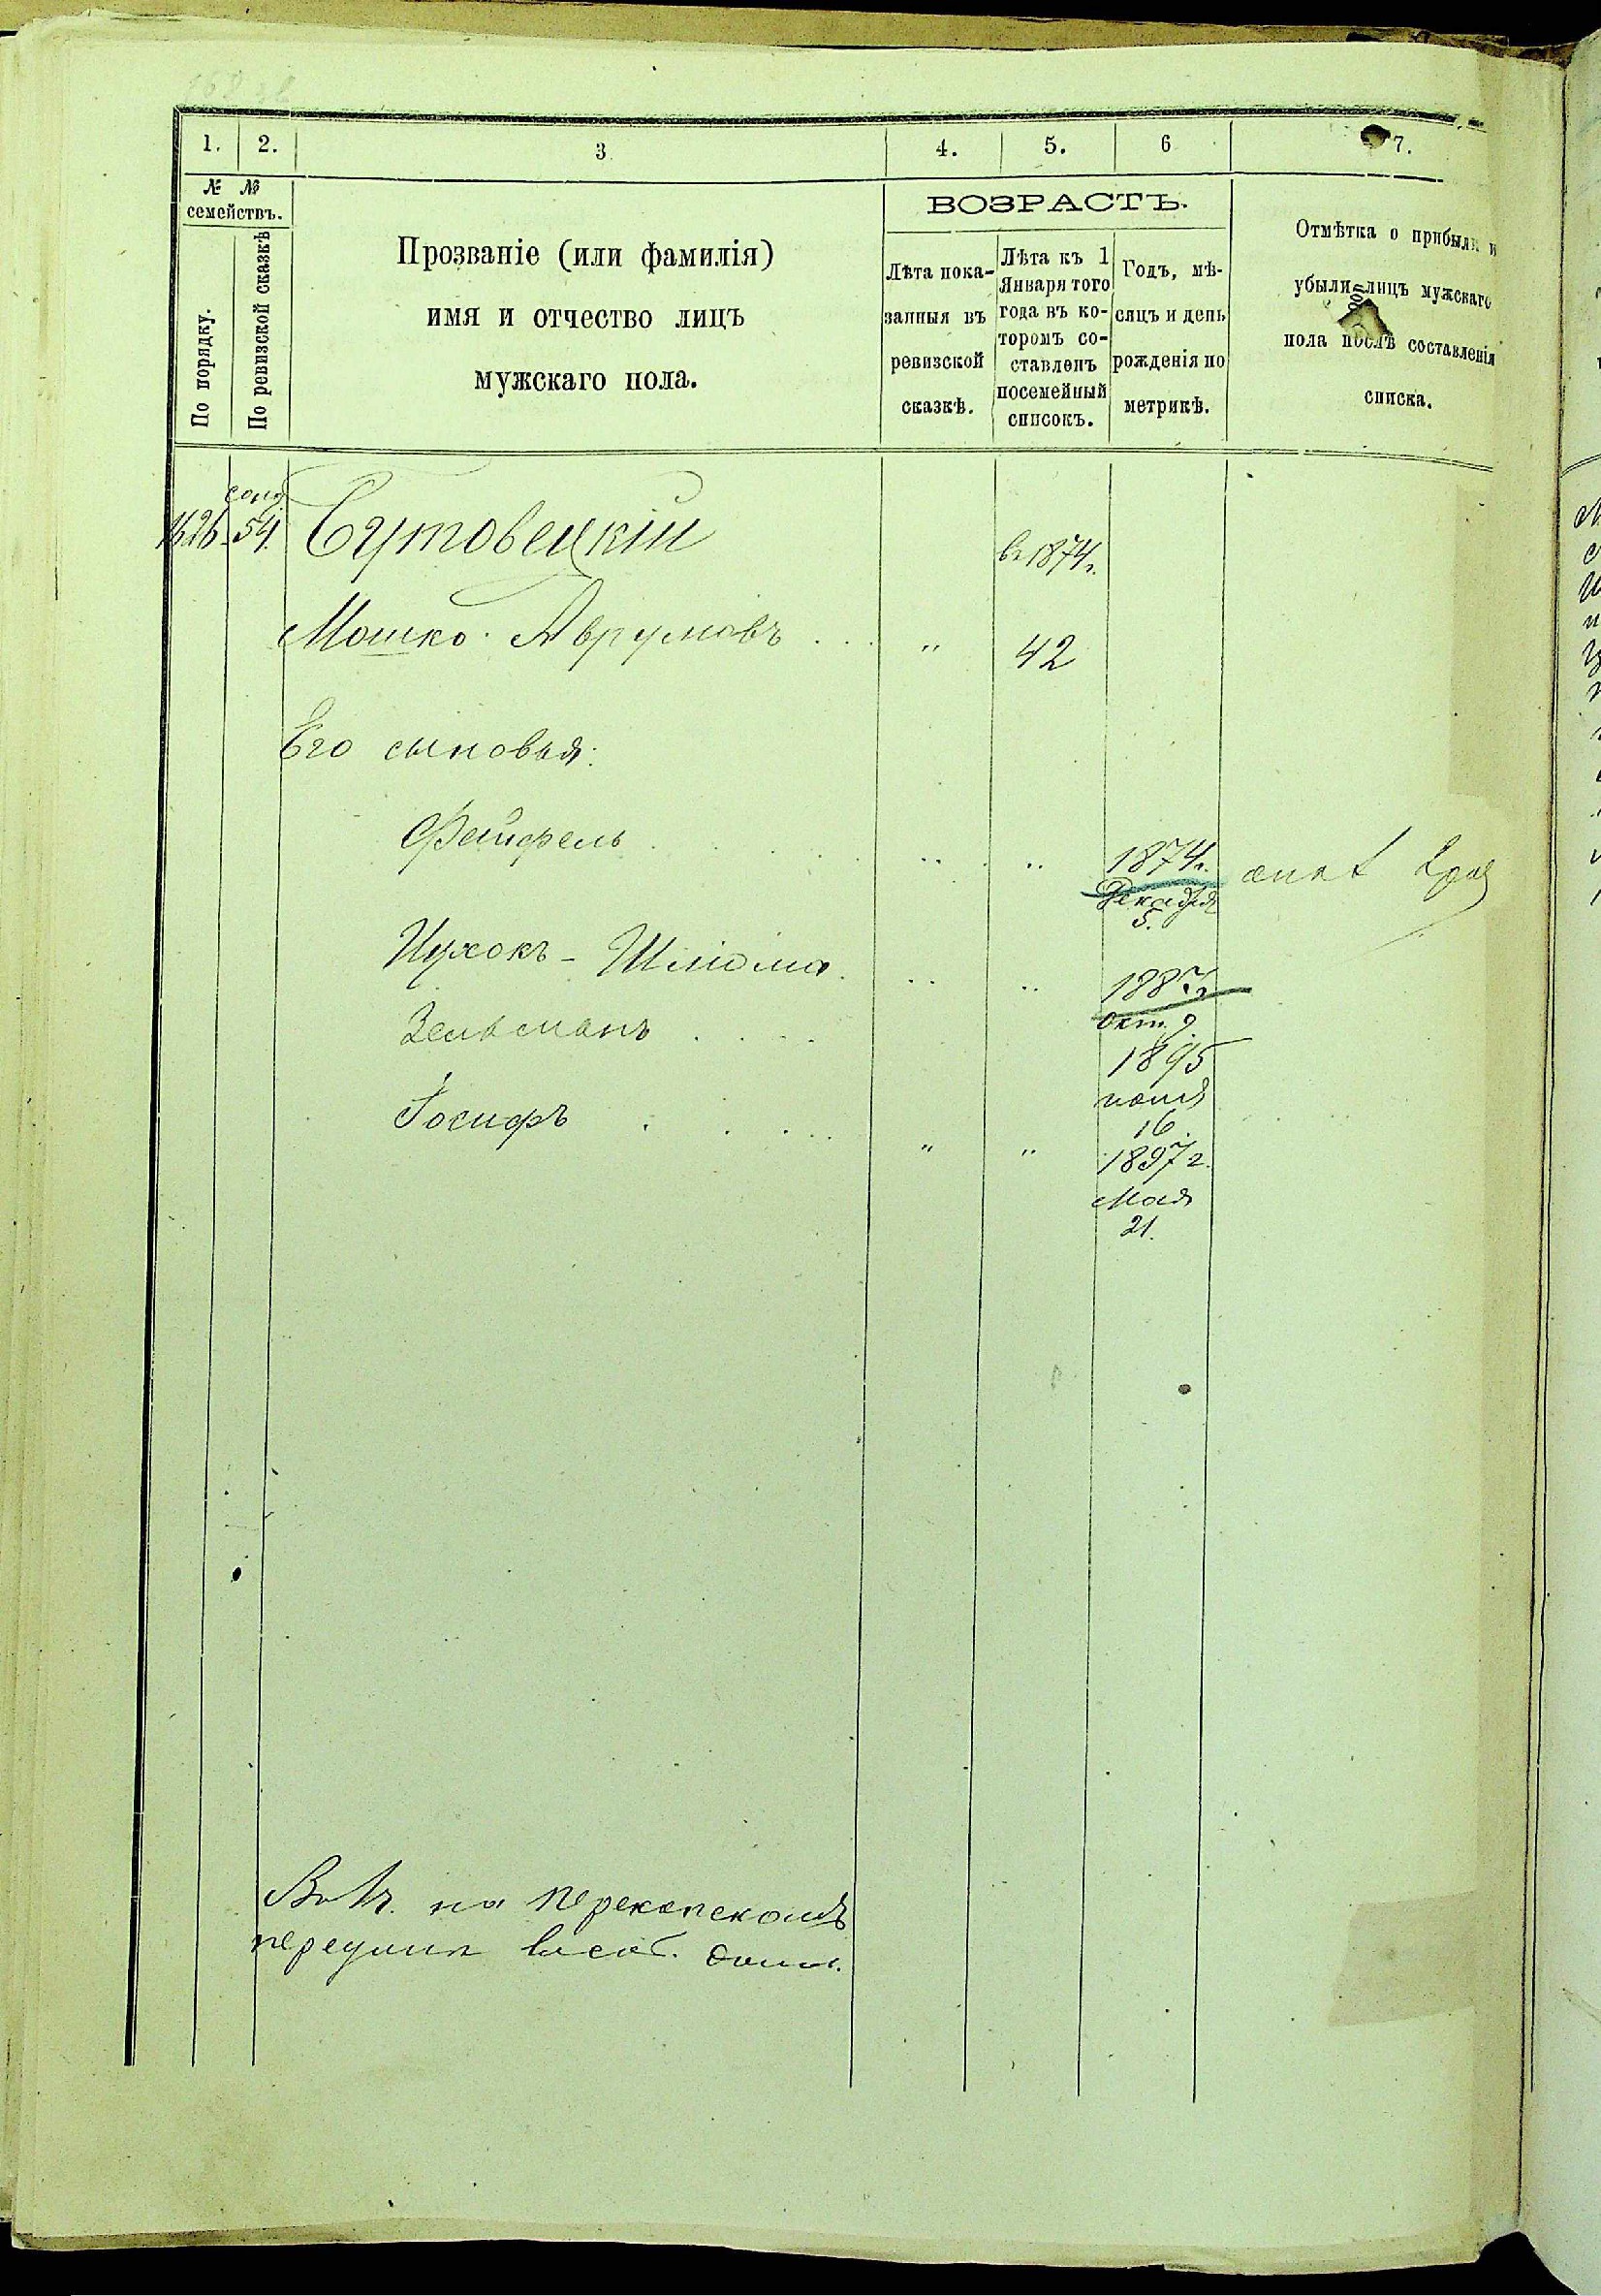 1. 2. 3 4. 5. 6 7.
№ №
семействъ.
По порядку.
По ревизской сказкѣ
Прозваніе (или фамилія)
имя и отчество лицъ
мужскаго пола.
ВОЗРАСТЪ.
Лѣта пока-
занныя въ
ревизской
сказкѣ.
Лѣта къ 1
Января того
года въ ко-
торомъ со-
ставленъ
посемейный
списокъ.
Годъ, мѣ-
сяцъ и день
рожденія по
метрикѣ.
Отмѣтка о прибыли и
убыли лицъ мужскаго
пола послѣ составленія
списка.
1626 54. Бутовецкій
въ 1874г.
Мошко Аврумовъ . . . " 42
Его сыновья:
Фейфель . . . " " 1874г.
Декабря
5.
Ицхокъ - Шлиома . " " 1887г
Окт. 9.
Зельманъ . . . . 1895
16.
Іосифъ . . . . " " 1897 г.
Мая
21.
на Перекопскомъ